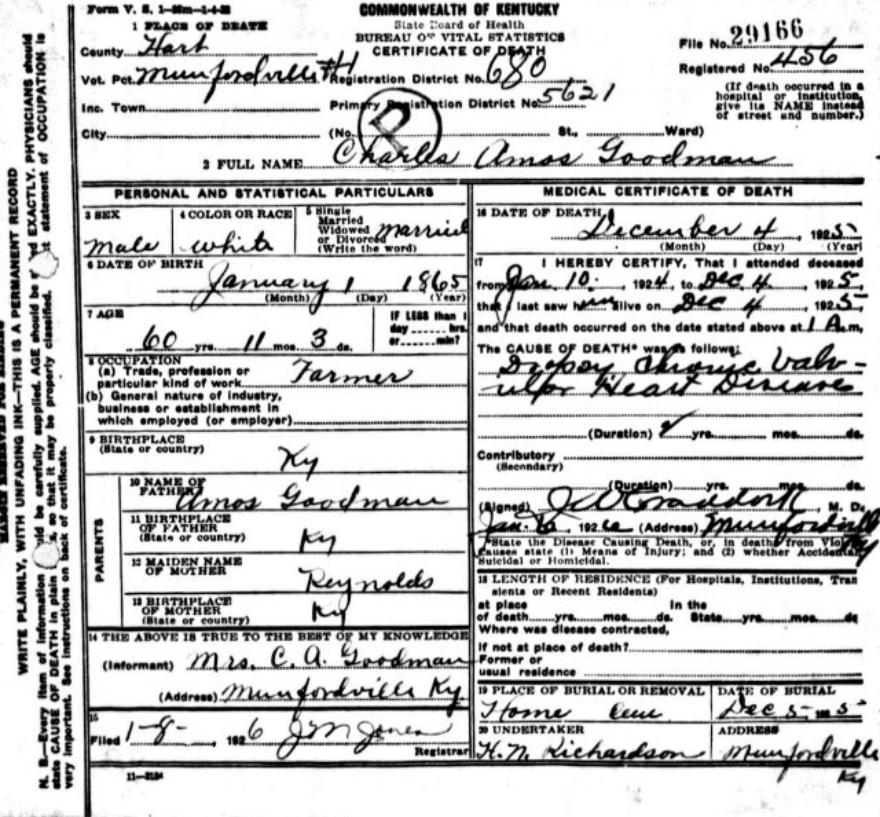 Form V. S. 1-
COMMONWEALTH OF KENTUCKY
State Board of Health
BUREAU OF VITAL STATISTICS
CERTIFICATE OF DEATH
1 PLACE OF DEATH
County Hart
Vot. Pct. Munfordville #1 Registration District No. 680
Inc. Town Primary Registration District No. 5621
City (No. St., Ward)
File No. 29166
Registered No. 456
(If death occurred in a
hospital or institution,
give its NAME instead
of street and number.)
R
2 FULL NAME Charles Amos Goodman
PERSONAL AND STATISTICAL PARTICULARS
3 SEX
Male
4 COLOR OR RACE
White
5 Single
Married
Widowed
or Divorced
(Write the word)
Married
6 DATE OF BIRTH
January 1 1865
(Month) (Day) (Year)
7 AGE
60 yrs. 11 mos. 3 ds.
IF LESS than 1
day hrs.
or min?
8 OCCUPATION
(a) Trade, profession or
particular kind of work Farmer
(b) General nature of industry,
business or establishment in
which employed (or employer)
9 BIRTHPLACE
(State or country)
Ky
PARENTS
10 NAME OF
FATHER Amos Goodman
11 BIRTHPLACE
OF FATHER
(State or country) Ky
12 MAIDEN NAME
OF MOTHER
Reynolds
13 BIRTHPLACE
OF MOTHER
(State or country) Ky
14 THE ABOVE IS TRUE TO THE BEST OF MY KNOWLEDGE
(Informant) Mrs. C. A. Goodman
(Address) Munfordville Ky.
15
Filed 1-8-, 1926 J M Jones
Registrar
11-3184
MEDICAL CERTIFICATE OF DEATH
16 DATE OF DEATH
December 4, 1925
(Month) (Day) (Year)
17 I HEREBY CERTIFY, That I attended deceased
from Jan. 10, 1924, to Dec 4, 1925,
that I last saw him alive on Dec 4 1925,
and that death occurred on the date stated above at 1 A.m,
The CAUSE OF DEATH* was as follows:
Dropsy Chronic Valv-
ular Heart Diseases
(Duration) yrs. mos. ds.
Contributory
(Secondary)
(Duration) yrs. mos. ds.
(Signed) J W Craddock, M. D.
Jan. 6, 192 (Address) Munfordville
Ky
*State the Disease Causing Death, or, in deaths from Violent
Causes state (1) Means of Injury; and (2) whether Accidental,
Suicidal or Homicidal.
18 LENGTH OF RESIDENCE (For Hospitals, Institutions, Tran
sients or Recent Residents)
at place In the
of death yrs. mos. ds. State yrs. mos. ds
Where was disease contracted,
if not at place of death?
Former or
usual residence
19 PLACE OF BURIAL OR REMOVAL
Home Cem
DATE OF BURIAL
Dec 5- 1925
20 UNDERTAKER
H. N. Richardson
ADDRESS
Munfordville
Ky
WRITE PLAINLY, WITH UNFADING INK—THIS IS A PERMANENT RECORD
N. B.—Every item of information should be carefully supplied. AGE should be EXACTLY. PHYSICIANS should
state CAUSE OF DEATH in plain so that it may be properly classified. statement of OCCUPATION is
very important. See instructions on back of certificate.